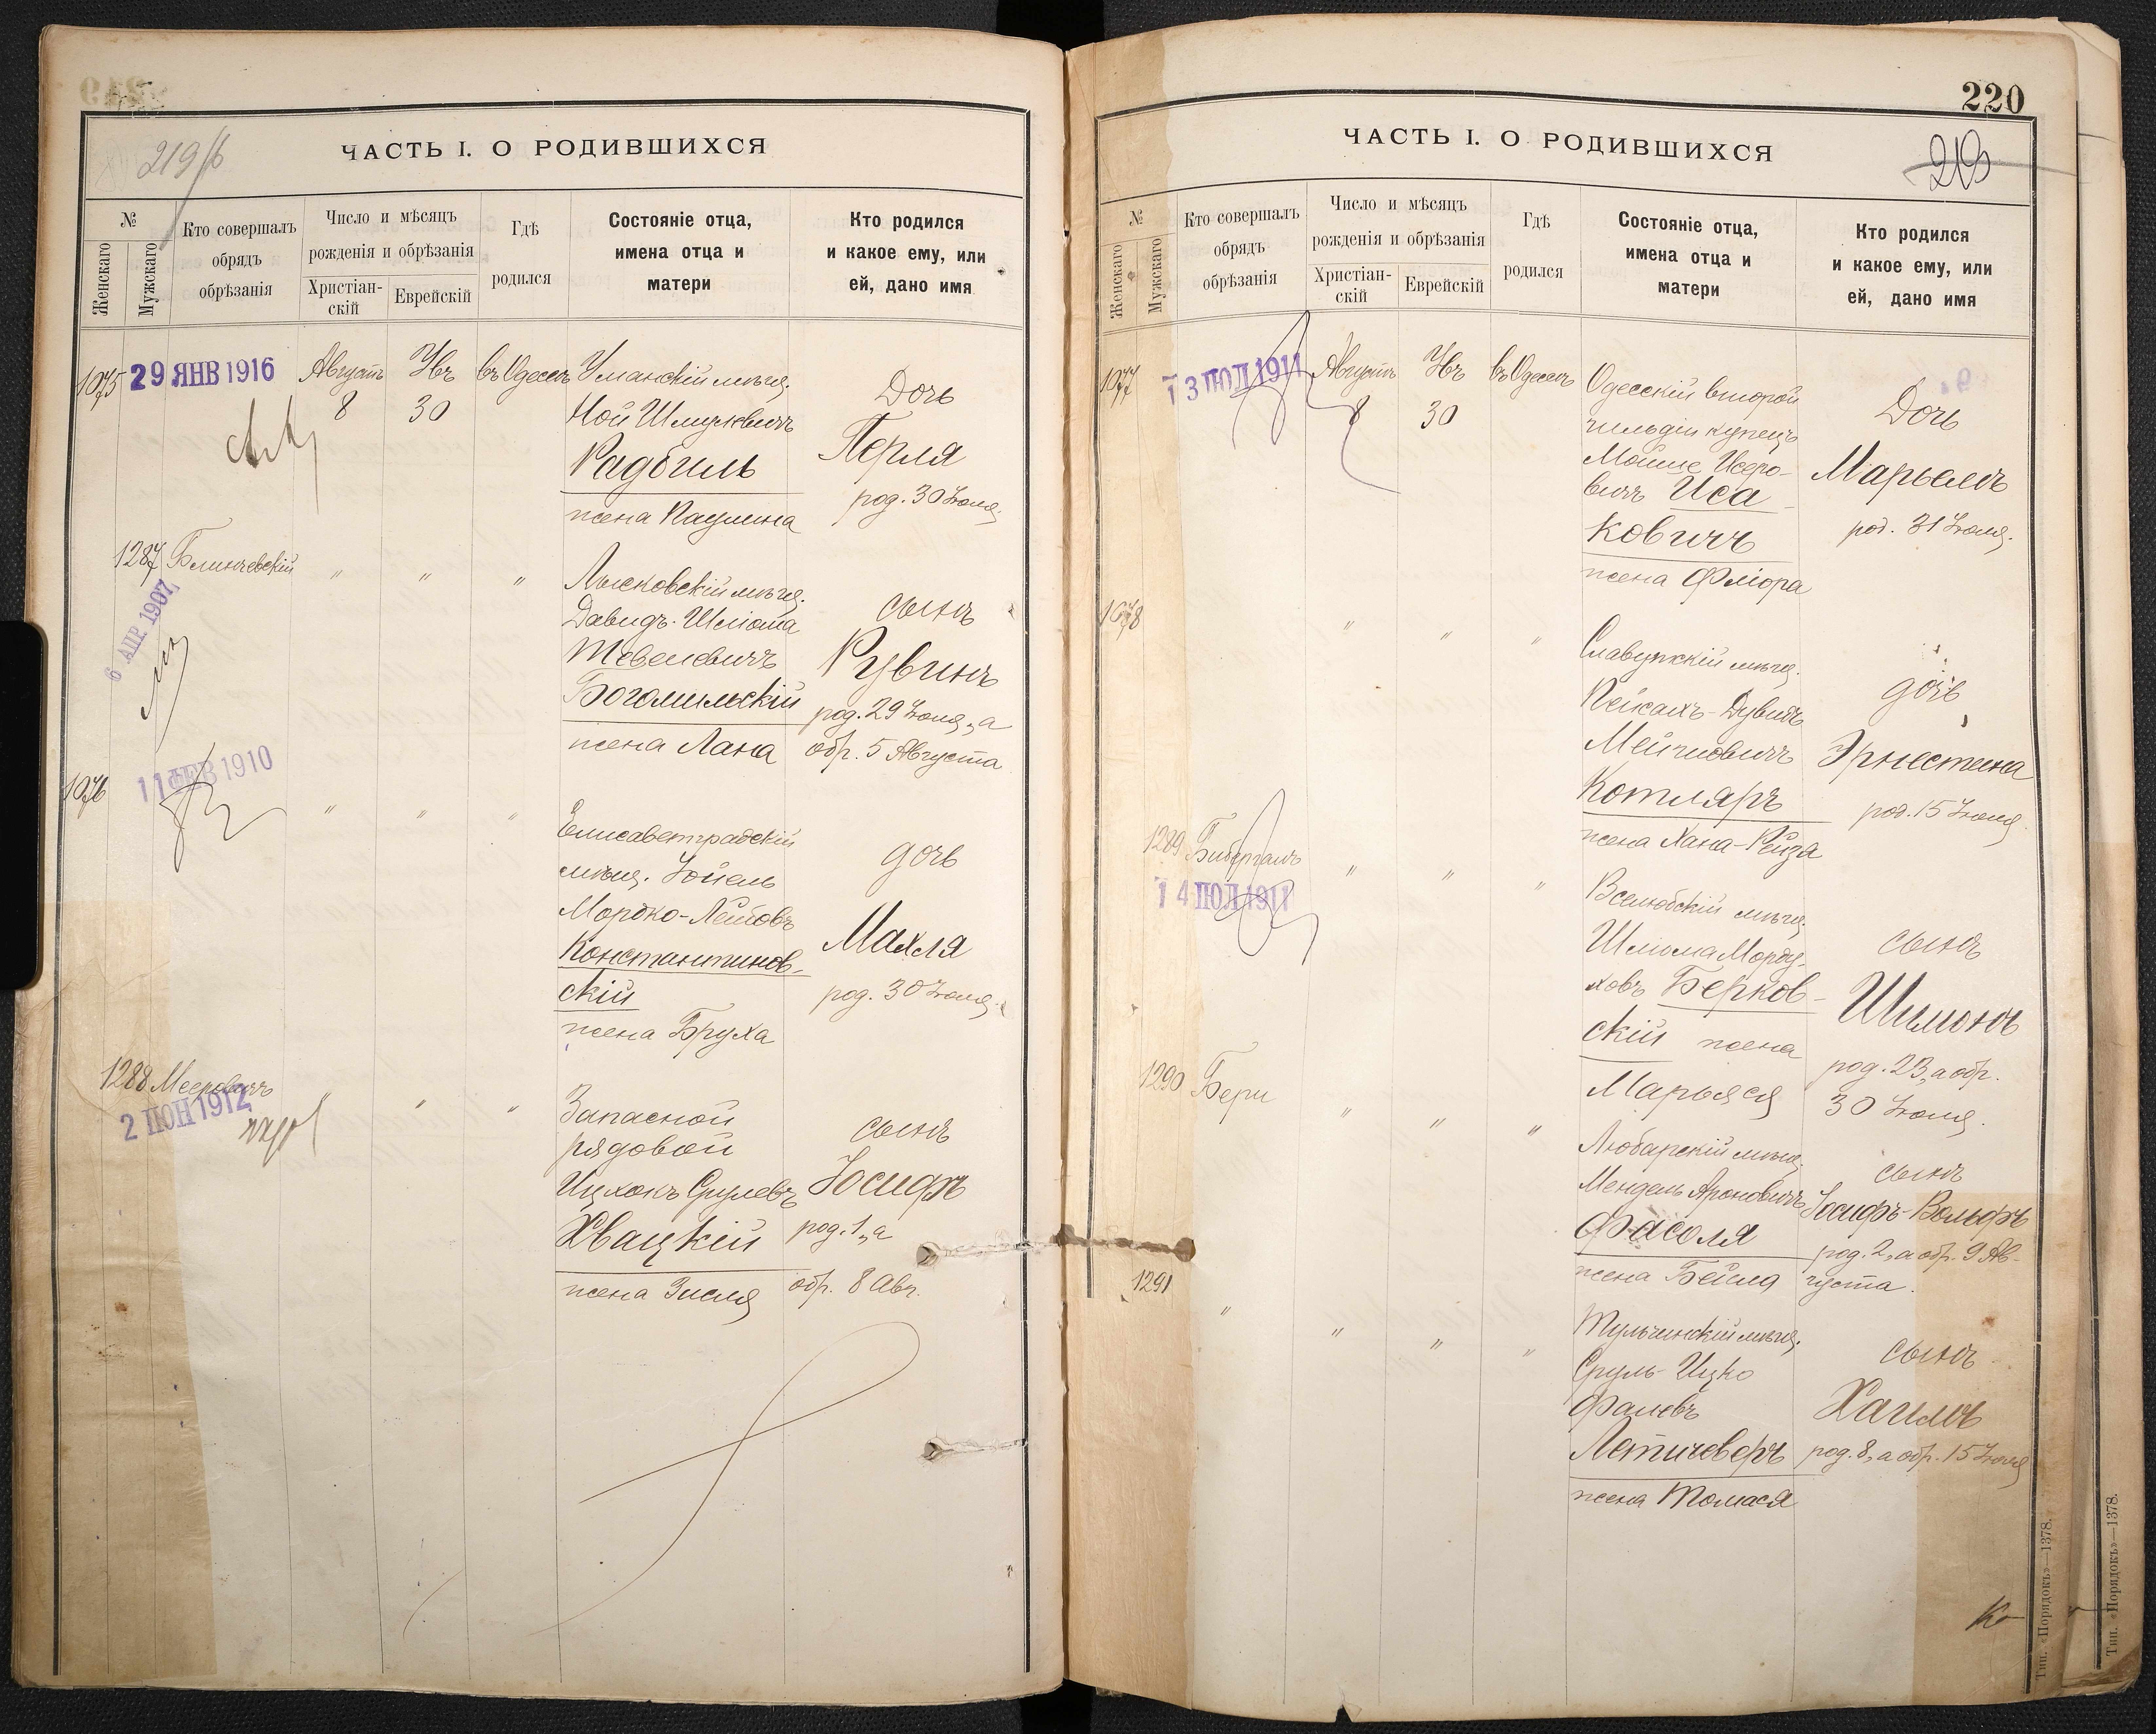 219/б
ЧАСТЬ I. О РОДИВШИХСЯ
№
Женскаго
Мужскаго
Кто совершалъ
обрядъ
обрѣзанія
Число и мѣсяцъ
рожденія и обрѣзанія
Христіан-
скій
Еврейскій
Гдѣ
родился
Состояніе отца,
имена отца и
матери
Кто родился
и какое ему, или
ей, дано имя
1075
29 ЯНВ 1916
Августъ
8
Овъ
30
въ Одессѣ
Уманскій мѣщ.
Ной Шмулевичъ
Радбиль
жена Паулина
Дочь
Перля
род. 30 Іюля.
1287
Блинчевскій
6 АПР. 1907
" " "
Лысковскій мѣщ.
Давидъ-Шлioма
Тевелевичъ
Богомильскій
жена Лана
сынъ
Рувинъ
род. 29 Іюля, а
обр. 5 Августа
1076
11 ФЕВ 1910
" " "
Елисаветградскій
мѣщ. Іойель
Мордко-Лейбовъ
Константинов-
скій
жена Бруха
дочь
Махля
род. 30 Іюля.
1288
Мееровичъ
2 ІЮН 1912
" " "
Запасной
рядовой
Ицхокъ Срулевъ
Хвацкій
жена Зисля
сынъ
Іосифъ
род. 1, а
обр. 8 Авг.
220
219
ЧАСТЬ I. О РОДИВШИХСЯ
№
Женскаго
Мужскаго
Кто совершалъ
обрядъ
обрѣзанія
Число и мѣсяцъ
рожденія и обрѣзанія
Христіан-
скій
Еврейскій
Гдѣ
родился
Состояніе отца,
имена отца и
матери
Кто родился
и какое ему, или
ей, дано имя
1077
13 ІЮЛ 1911
Августъ
8
Овъ
30
въ Одессѣ
Одесскій второй
гильдіи купецъ
Мойше Исеро-
вичъ Иса-
ковичъ
жена Фліора
Дочь
Марьемъ
род. 31 Іюля.
1078
" " "
Славутскій мѣщ.
Пейсахъ-Дувидъ
Котляръ
жена Хана-Рейза
дочь
Эрнестина
род. 15 Іюля
1289
Бибергалъ
14 ІЮЛ 1911
" " "
Вселюбскій мѣщ.
Шліома Морду-
ховъ Берков-
скій жена
Марьяся
сынъ
Шимонъ
род. 23, а обр.
30 Іюля.
1290
Бери
" " "
Любарскій мѣщ.
Мендель Ароновичъ
Фасоля
жена Бейла
сынъ
Іосифъ-Вольфъ
род. 2, а обр. 9 Ав-
густа.
1291
" " " "
Тульчинскій мѣщ.
Сруль-Ицко
Фалевъ
Летичеверъ
жена Томася
сынъ
Хаимъ
род. 8, а обр. 15 Іюля
Тип. «Порядокъ»—1378.
Тип. «Порядокъ»—1378.